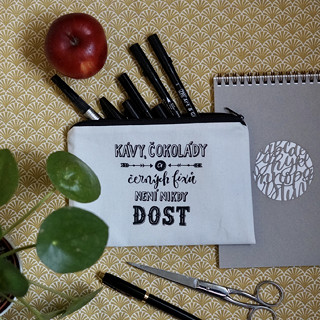 KÁVY, ČOKOLÁDY
a
černých fixů
NENÍ NIKDY
DOST